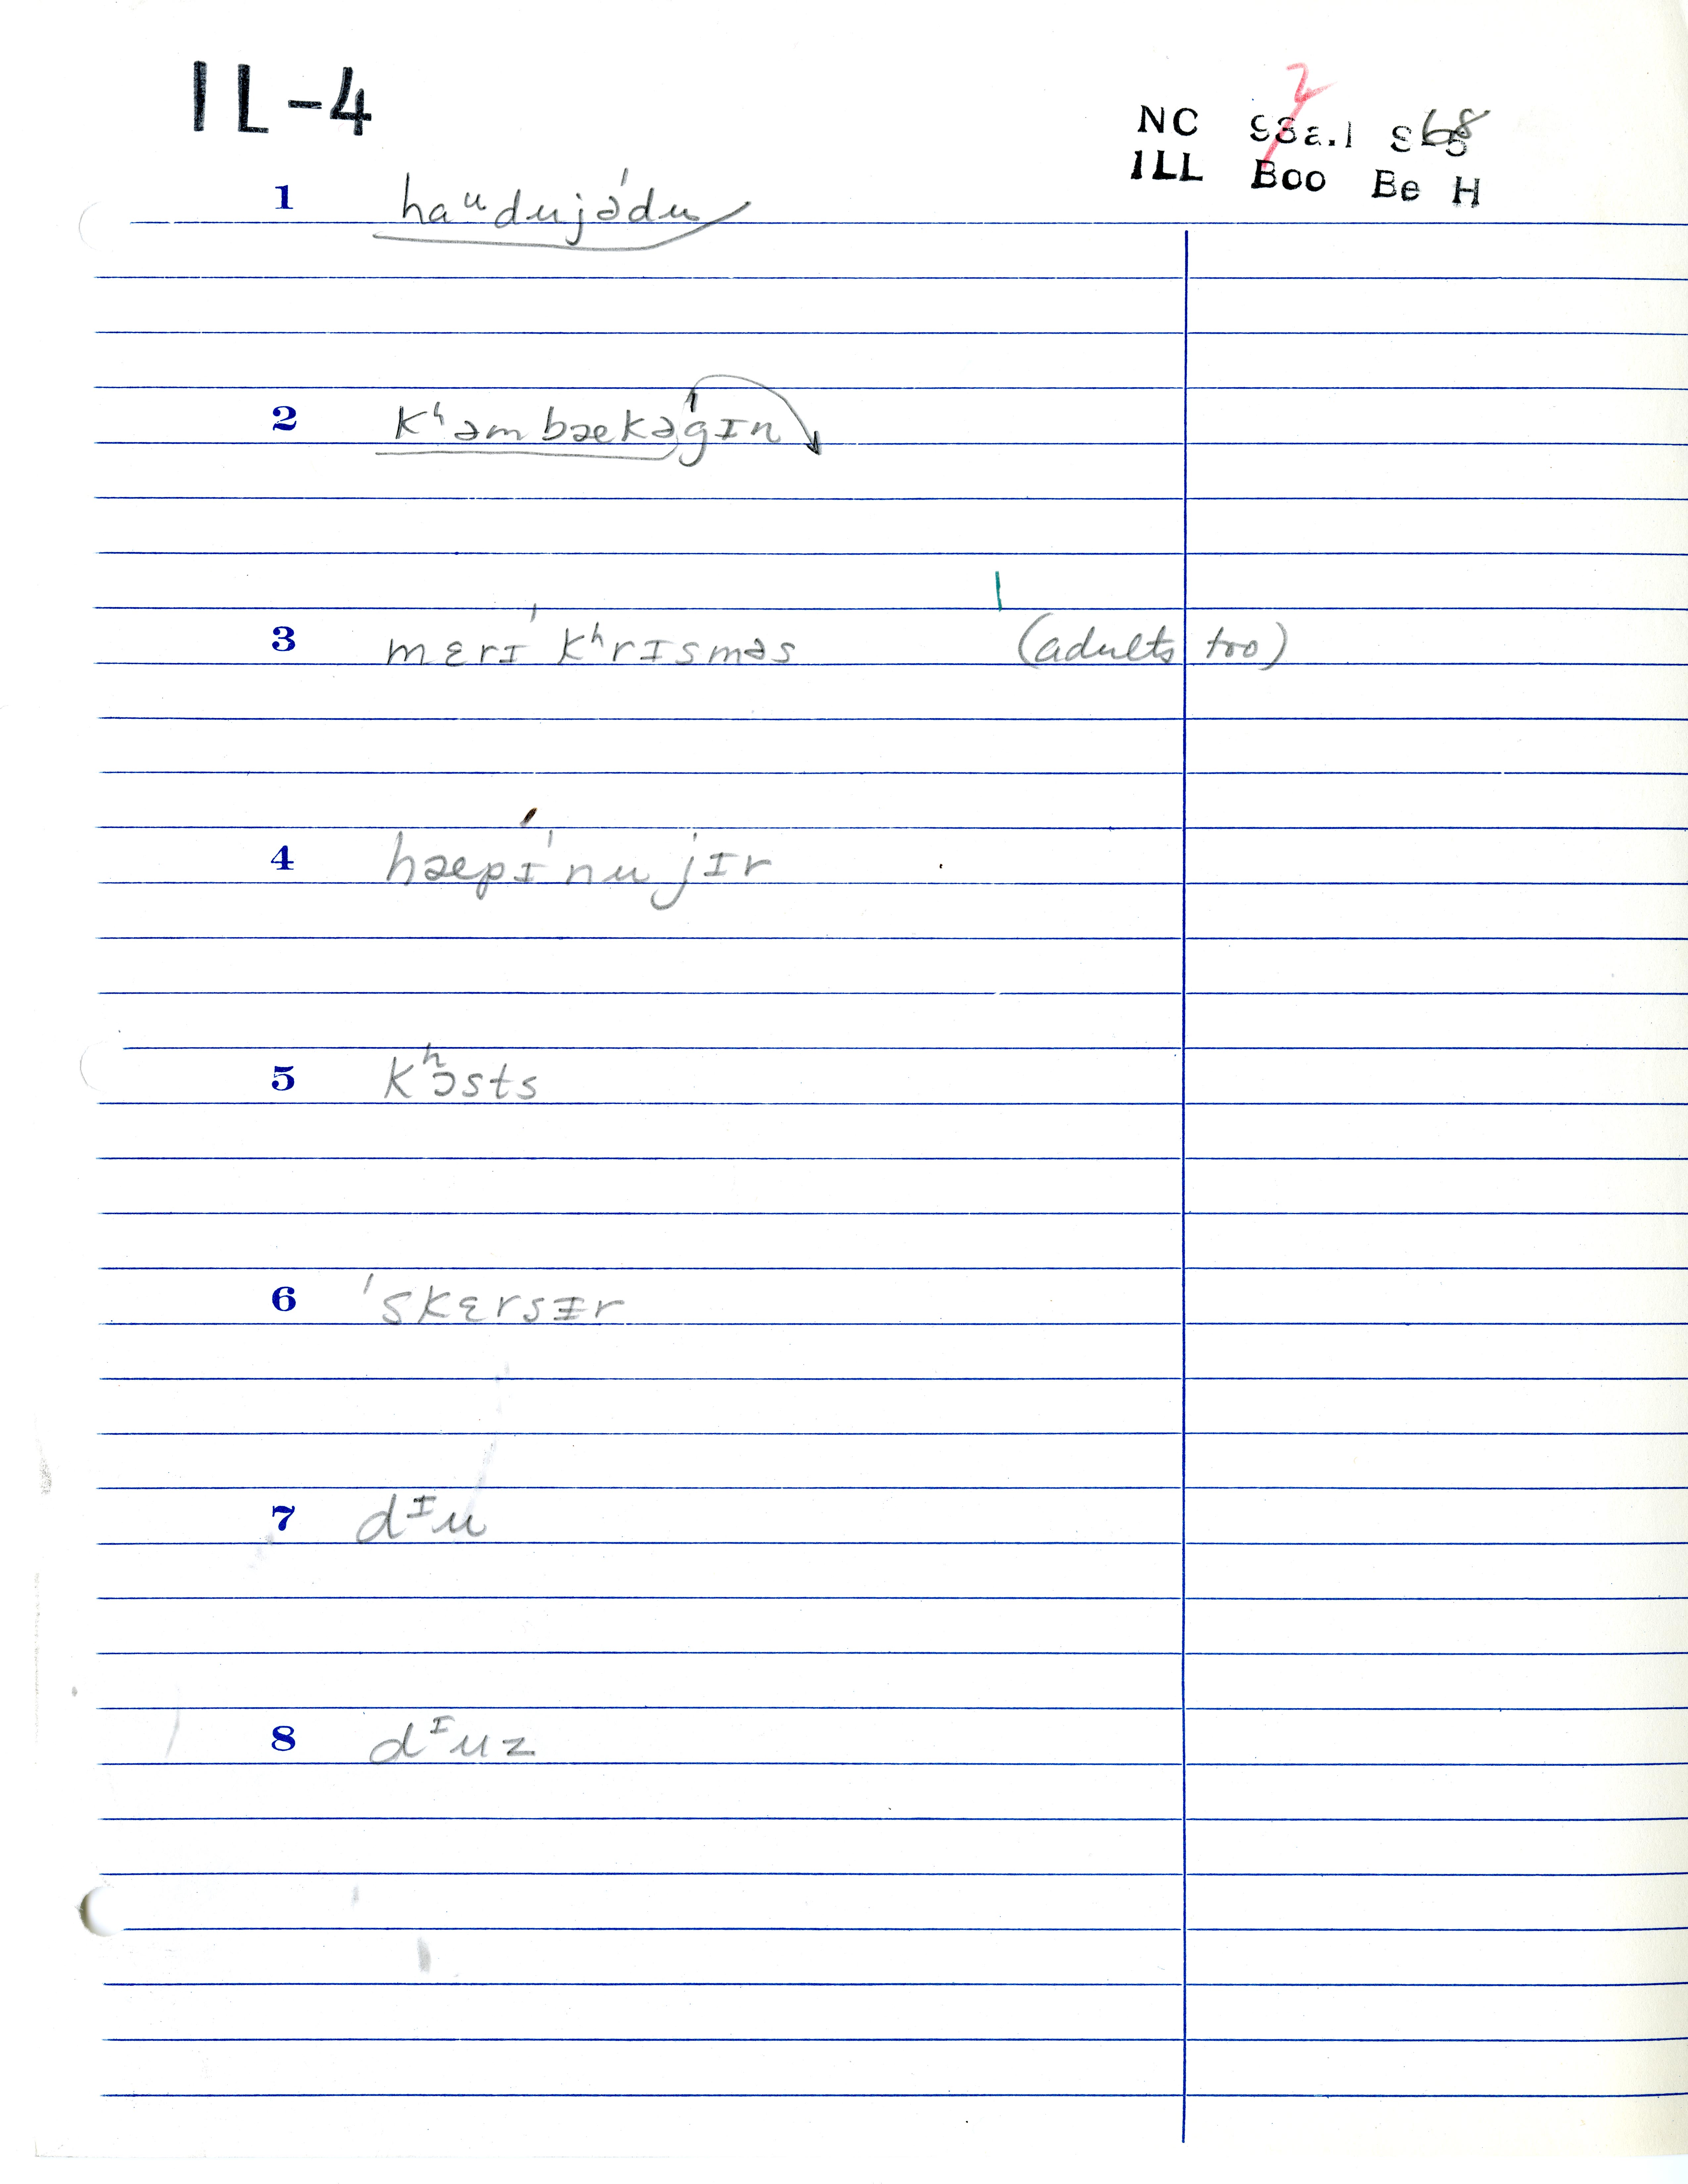 IL-4
NC
ILL Boo Be H
1 haᵘdujə'du
2 kʰəmbækə'gɪn
3 mɛrɪ' kʰrɪsməs (adults too)
4 hæpɪ' nu jɪr
5 kʰɔsts
6 'skɛrsɪr
7 dᶦu
8 dᶦuz